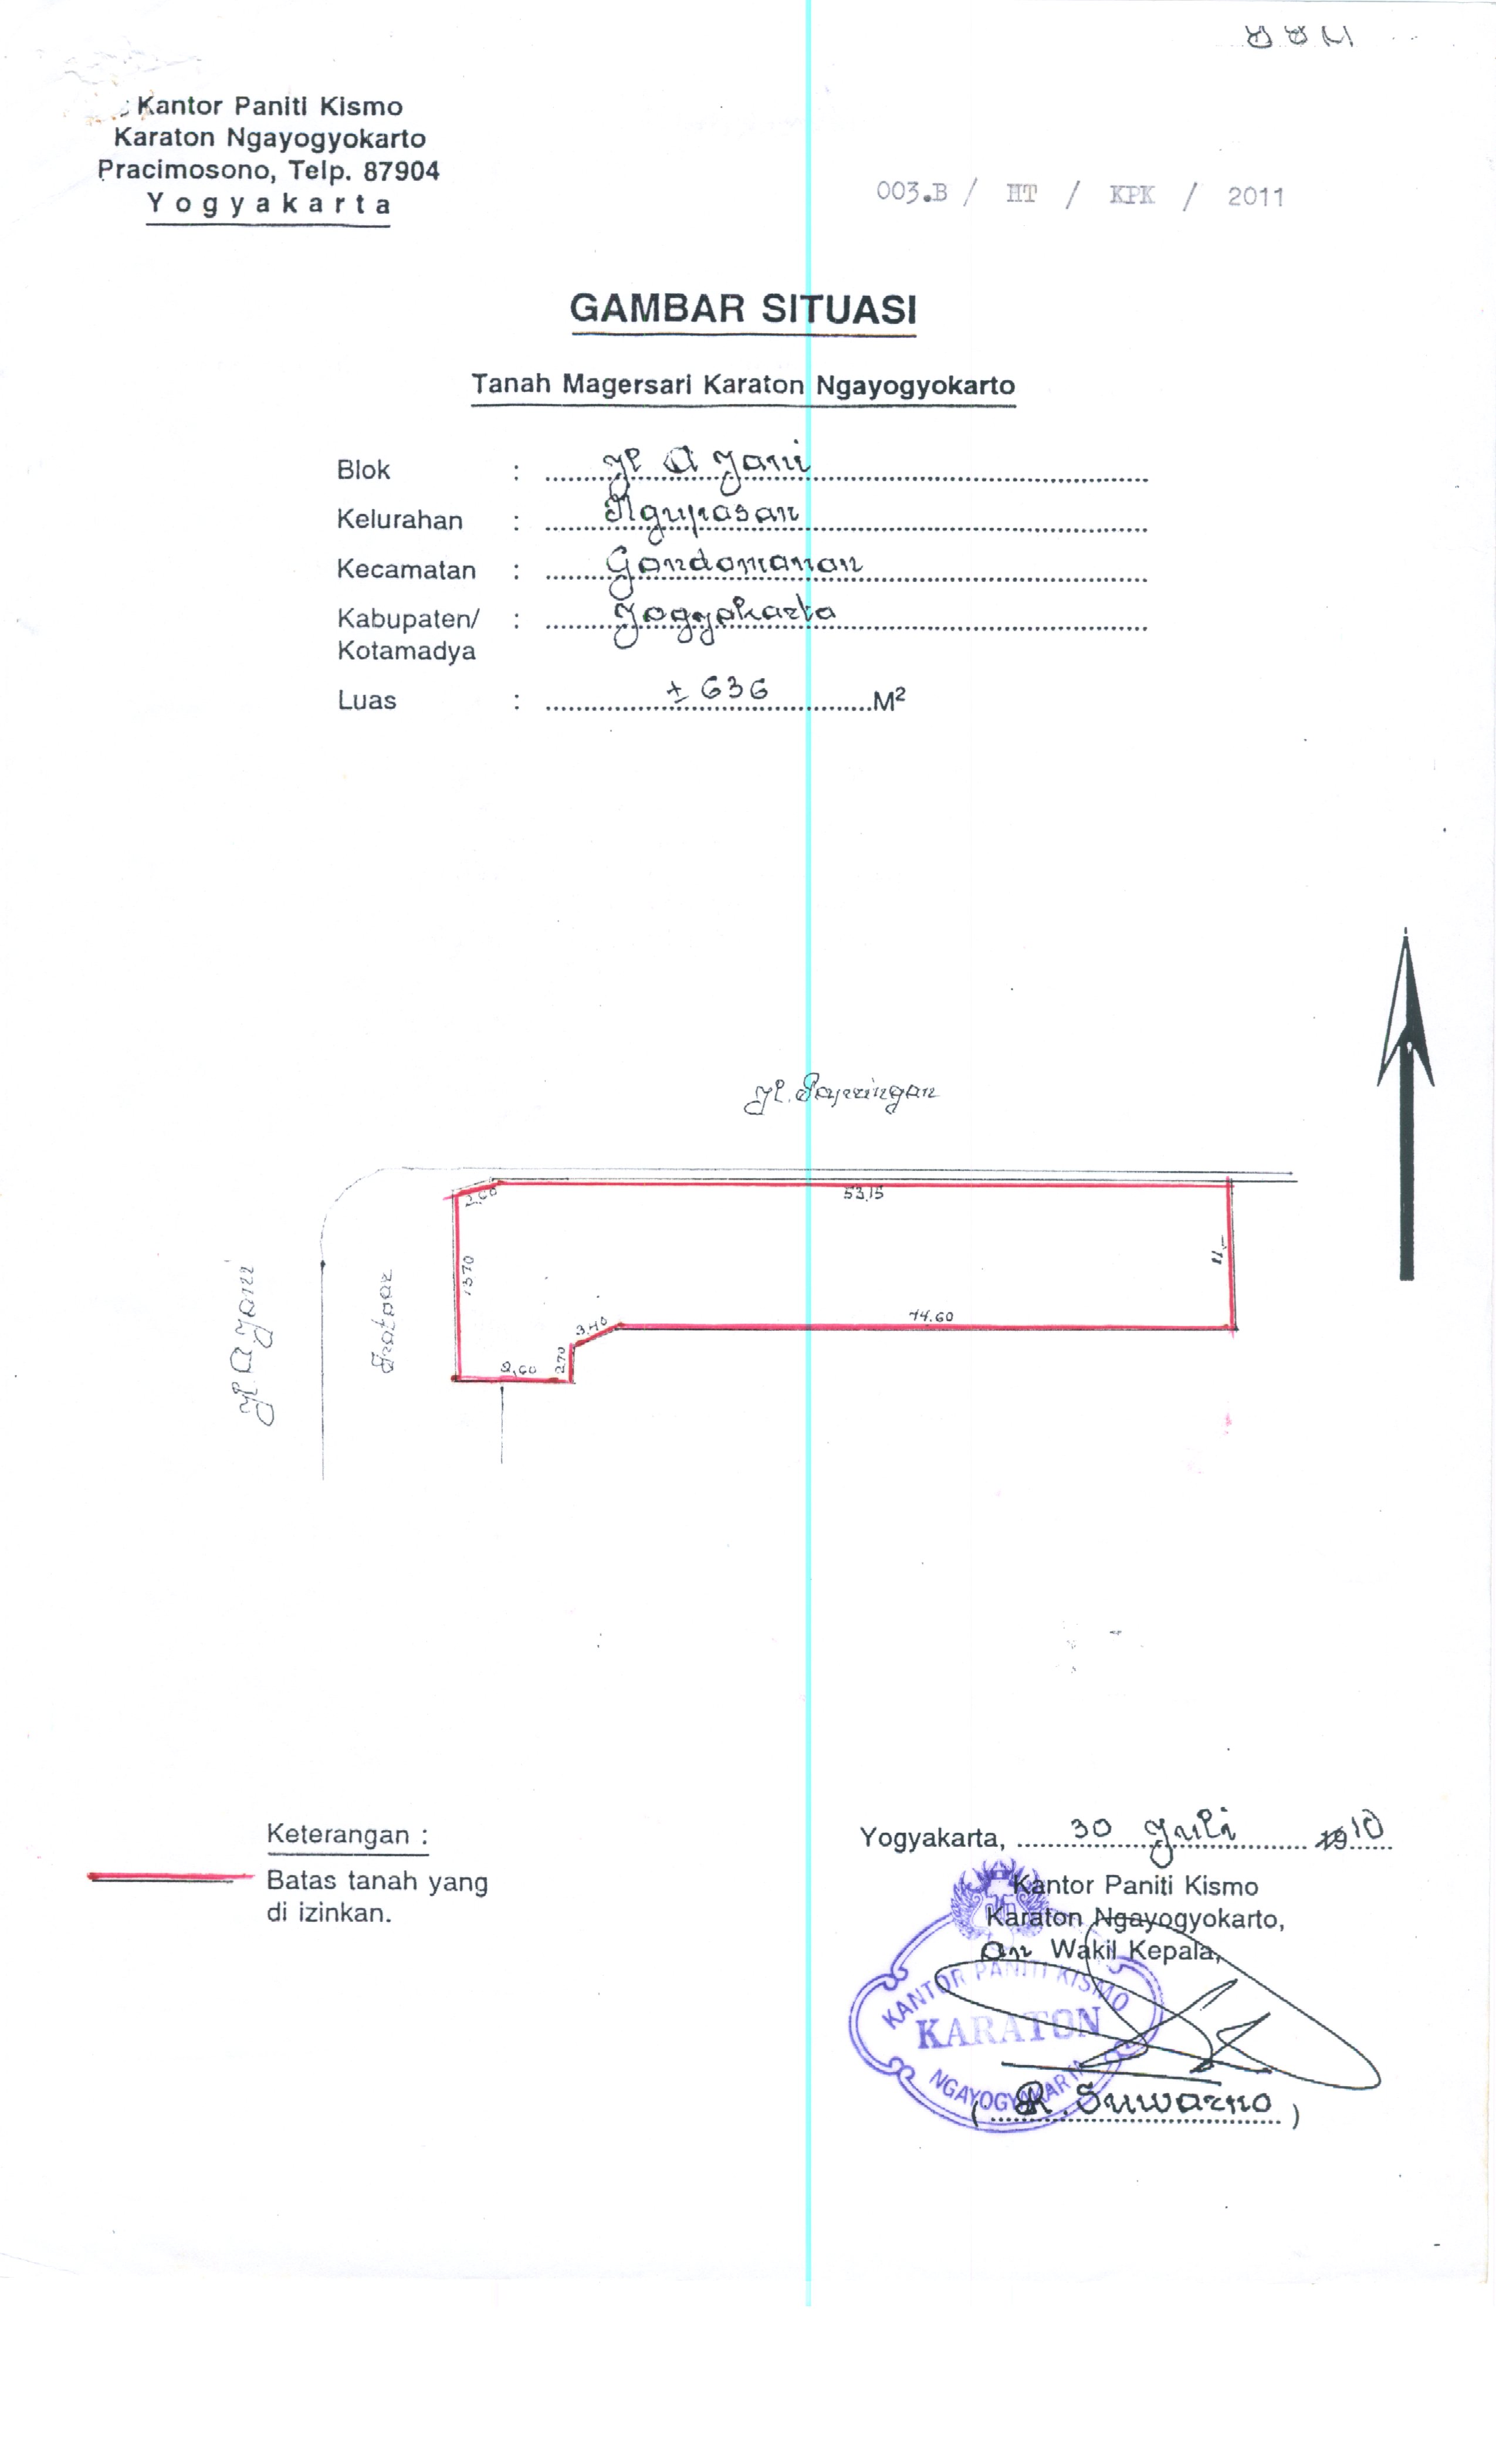 Kantor Paniti Kismo
Karaton Ngayogyokarto
Pracimosono, Telp. 87904
Yogyakarta
003.B / HT / KPK / 2011
GAMBAR SITUASI
Tanah Magersari Karaton Ngayogyokarto
Blok : Jl A Yani
Kelurahan : Ngupasan
Kecamatan : Gondomanan
Kabupaten/ : Yogyakarta
Kotamadya
Luas : ± 636 M²
Jl.
2,60
53,15
1370
11,-
Jl. A Yani
Trotoar
3,40
44.60
2,60
270
Keterangan :
Batas tanah yang
di izinkan.
Yogyakarta, 30 Juli 10
Kantor Paniti Kismo
Karaton Ngayogyokarto,
an Wakil Kepala,
KANTOR PANITI KISMO
KARATON
NGAYOGYAKARTA
( R. Suwarno )